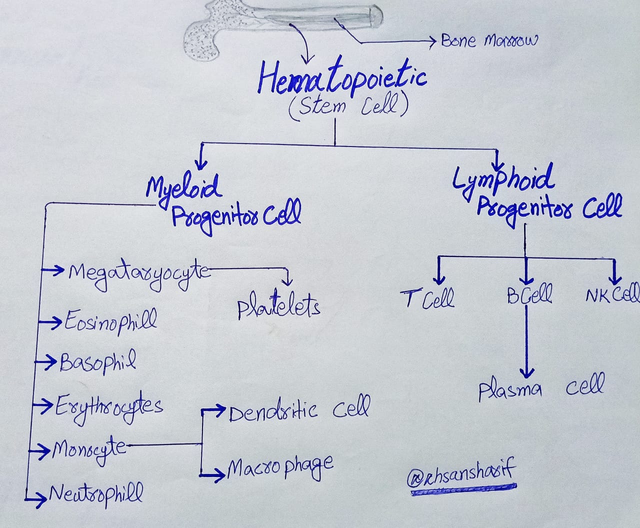 Bone Marrow
Hematopoietic
(Stem Cell)
Myeloid
Progenitor Cell
Lymphoid
Progenitor Cell
Megataryocyte
Platelets
T Cell
B Cell
NK Cell
Eosinophill
Basophil
Plasma cell
Erythrocytes
Dendritic cell
Monocyte
Macrophage
@ehsansharif
Neutrophill